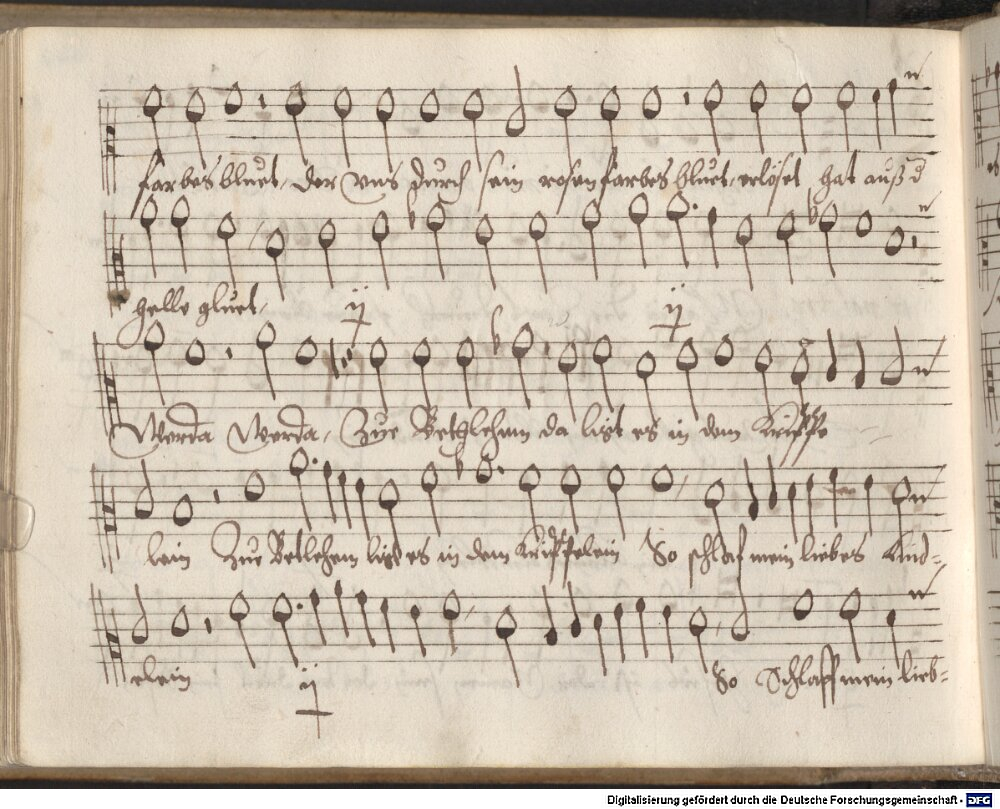 farbes bluet, der vns durch sein rosenfarbes bluet, erlöset hat auß d
helle gluet, ij ij
Werda Werda, Zue Bethlehem da ligt es in dem Krippe
lein Zue Betlehem ligt es in dem Krippelein So schlaf mein liebes Kind-
elein ij So Schlaff mein lieb-
Digitalisierung gefördert durch die Deutsche Forschungsgemeinschaft - DFG